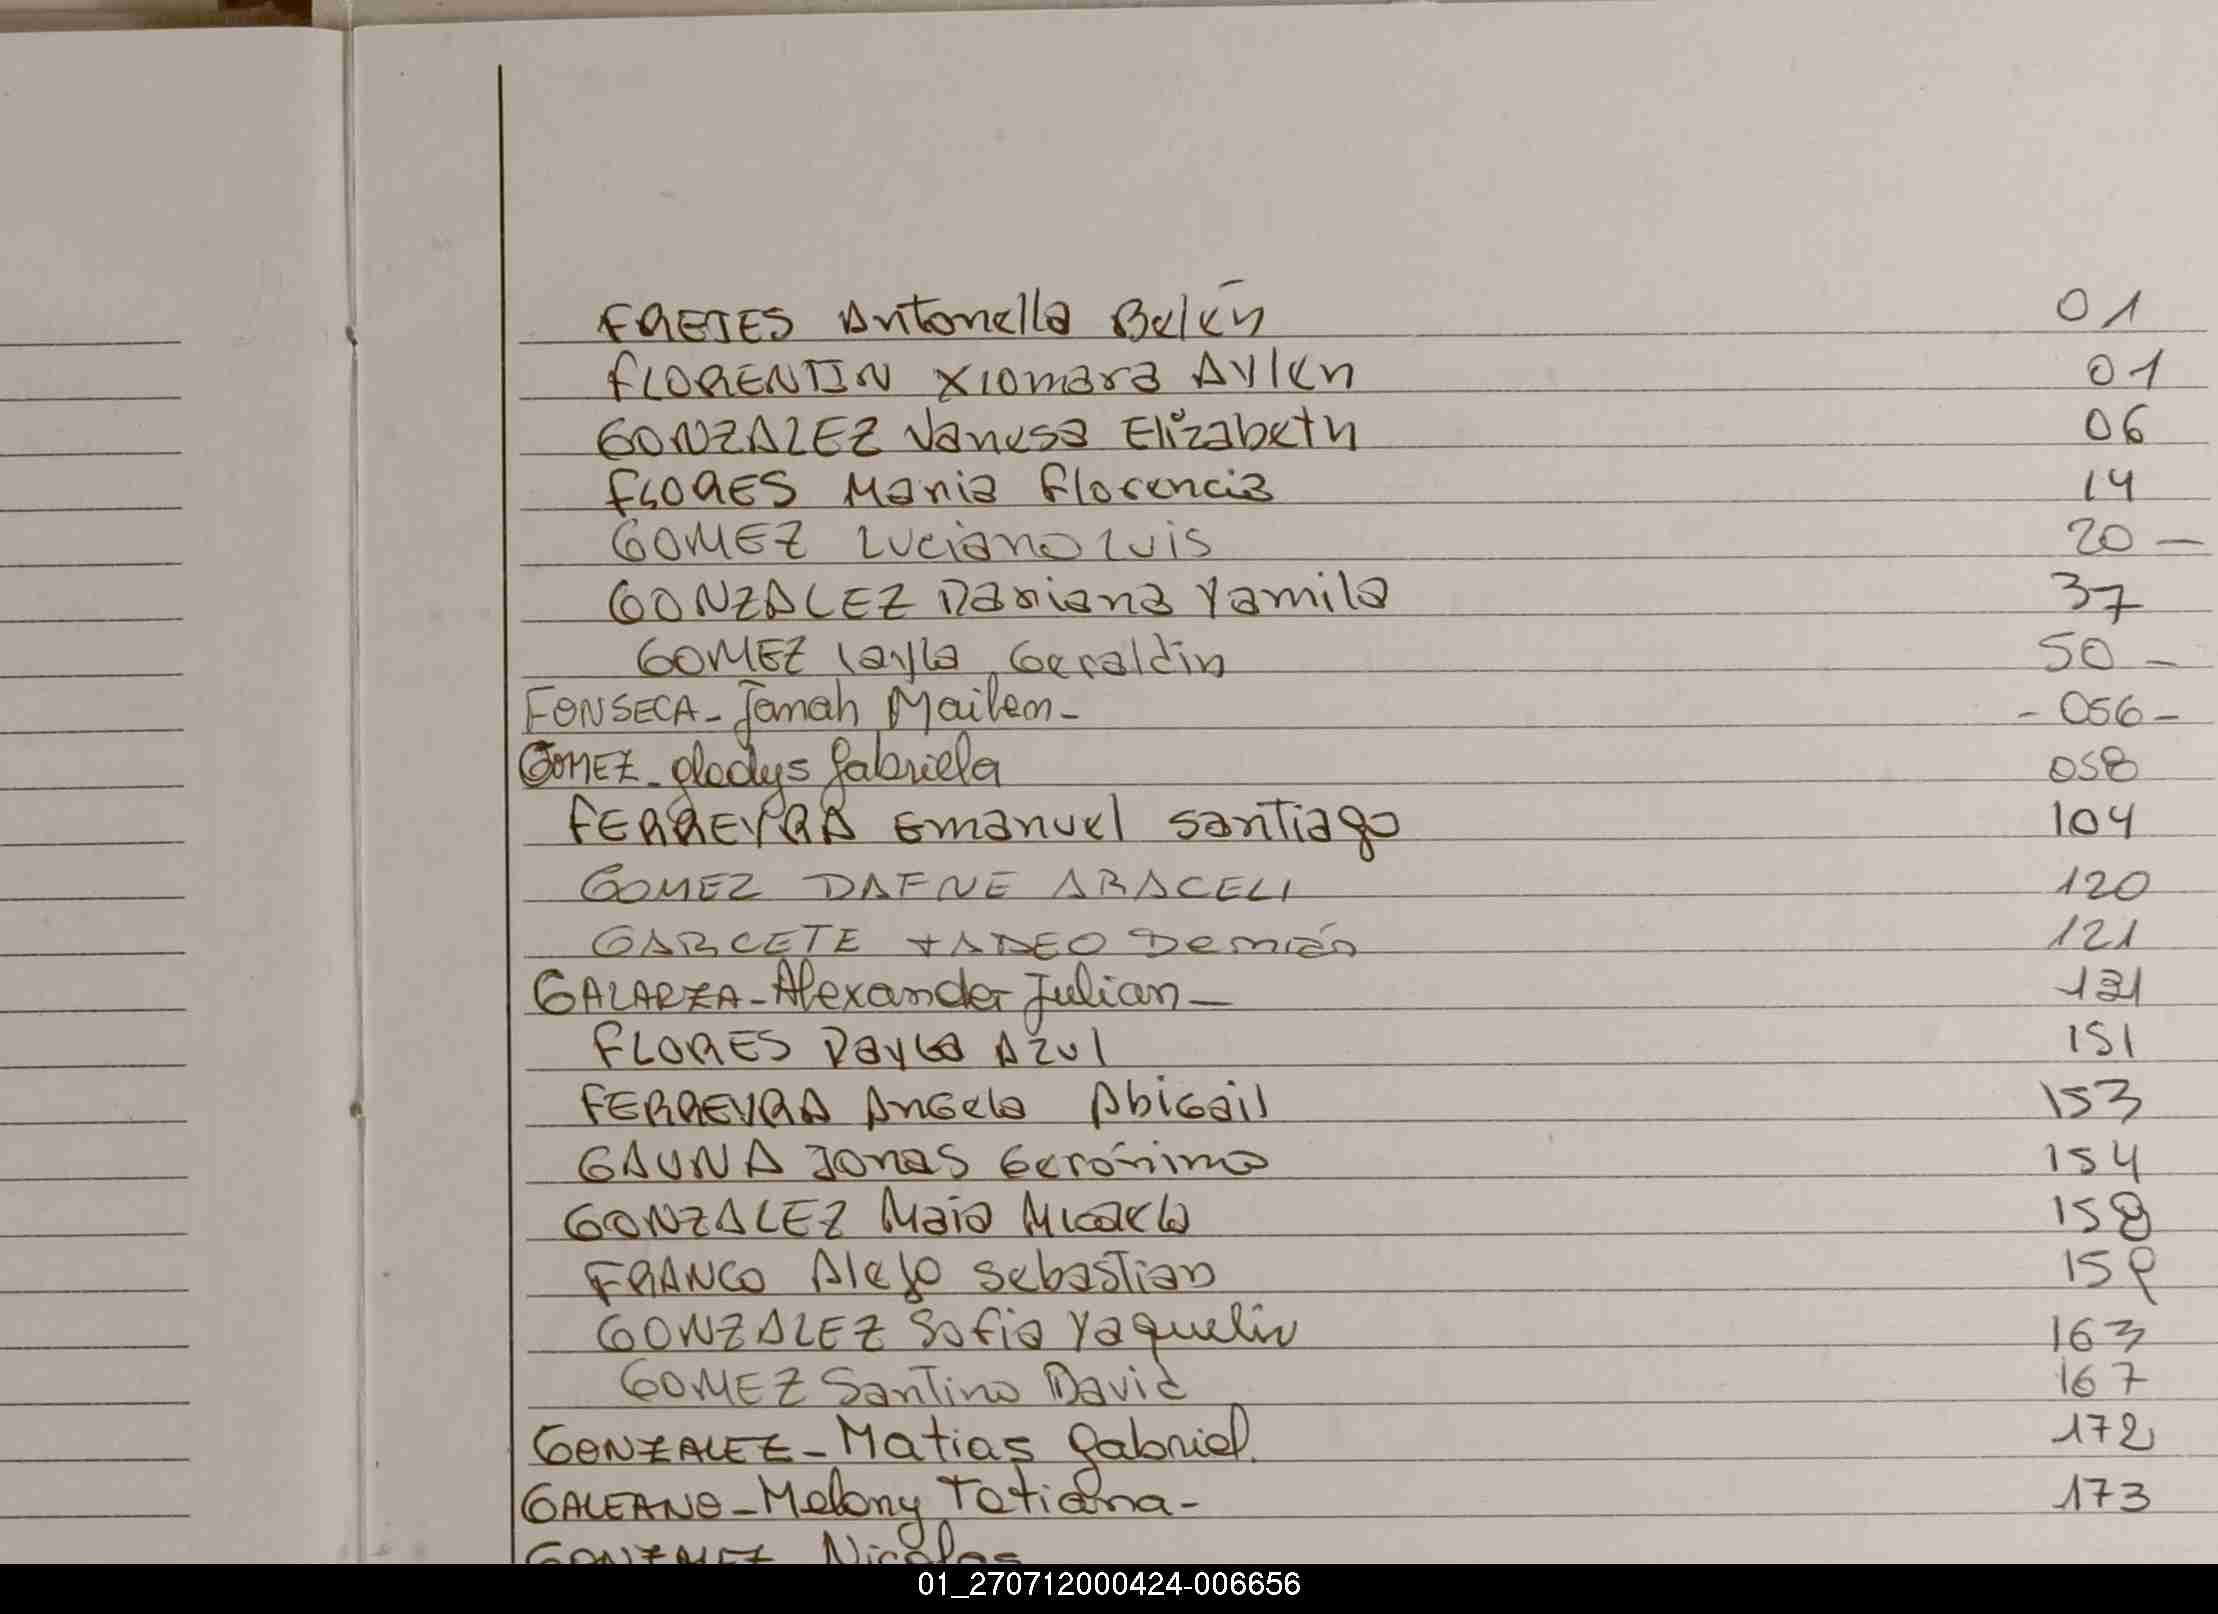 FRETES Antonella Belén 01
FLORENTIN Xiomara Aylen 01
GONZALEZ Vanesa Elizabeth 06
FLORES Maria Florencia 14
GOMEZ Luciano Luis 20 —
GONZALEZ Dariana Yamila 37
GOMEZ Layla Geraldin 50 —
FONSECA - Janah Mailen - - 056 -
GOMEZ - gladys gabriela 058
FERREYRA Emanuel Santiago 104
GOMEZ DAFNE ARACELI 120
GARCETE TADEO Demián 121
GALARZA - Alexander Julian — 131
FLORES Dayla Azul 151
FERREYRA Angela Abigail 153
GAUNA Jonas Gerónimo 154
GONZALEZ Maia Micaela 158
FRANCO Alejo Sebastian 159
GONZALEZ Sofia Yaquelin 163
GOMEZ Santino David 167
GONZALEZ - Matias gabriel. 172
GALEANO - Melany Tatiana - 173
GONZALEZ Nicolas
01_270712000424-006656